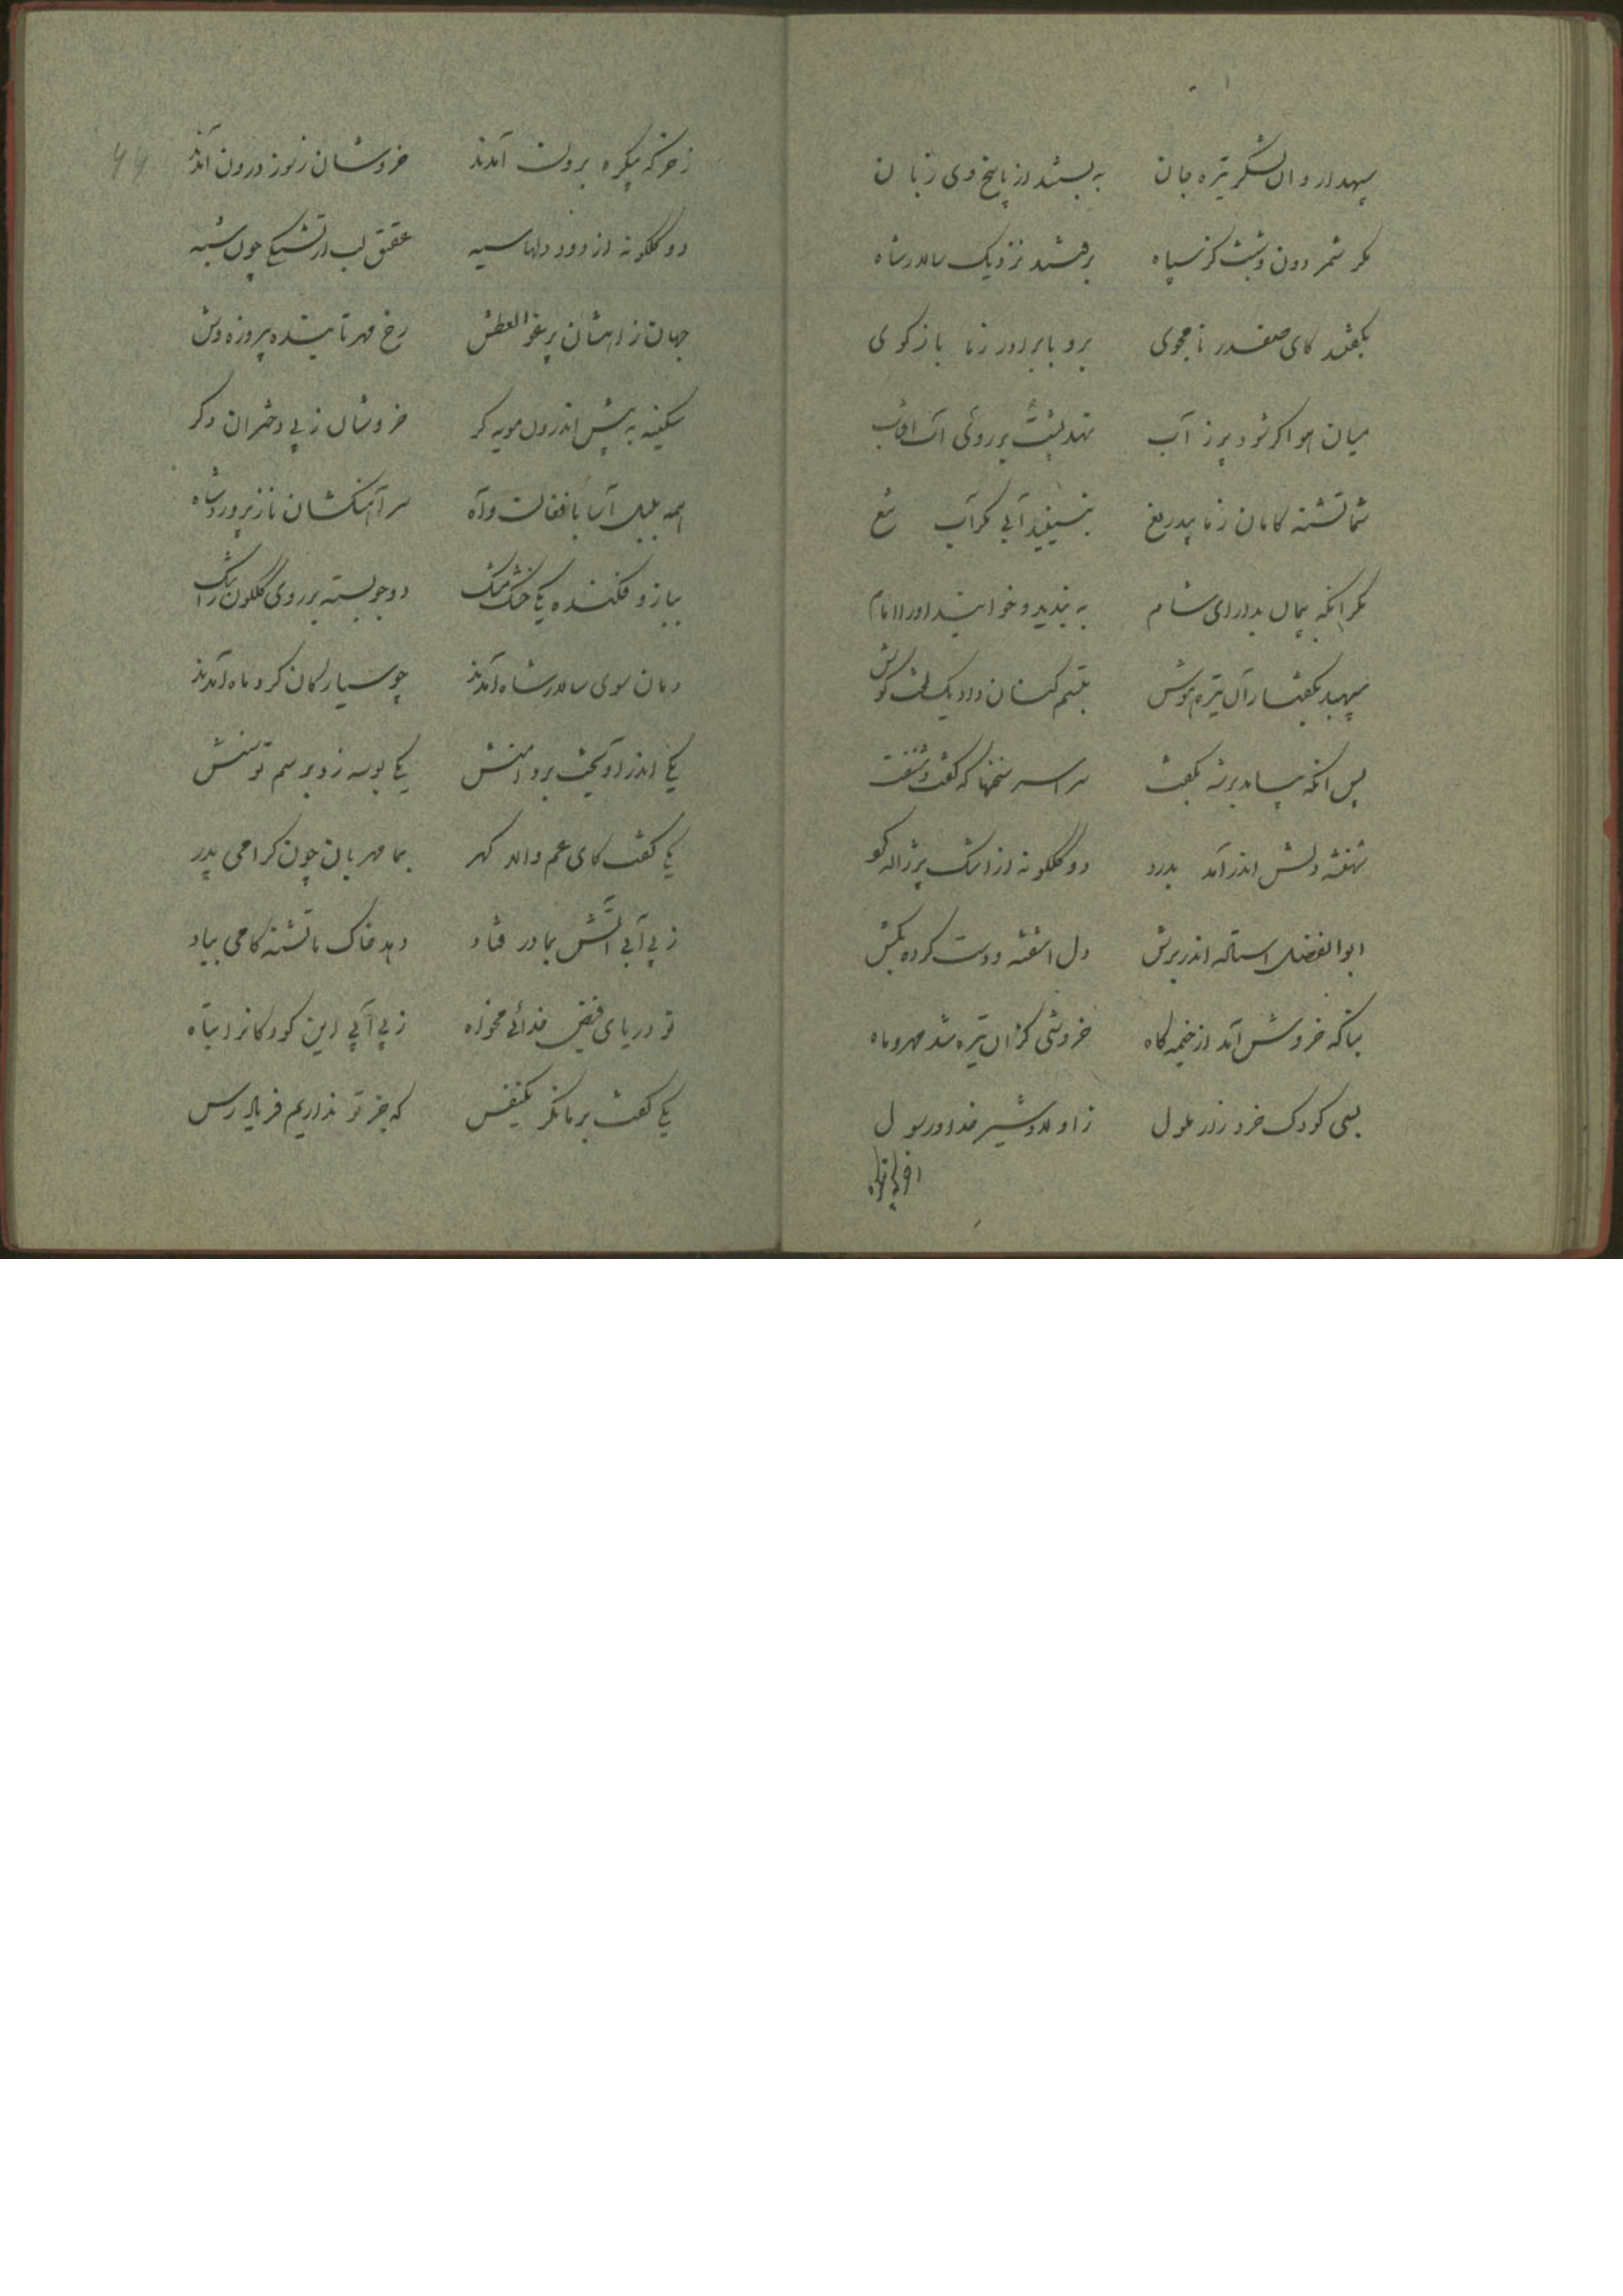 سپهدار و آن لشکر تیره جان به بستند از پاسخ وی زبان
مگر شمر دون و شبث کز سپاه برفتند نزدیک سالار شاه
بگفتند کای صفدر نامجوی برو با برادر ز ما بازگوی
میان هوا گر شود پر ز آب نهد پشت بر روی آن آفتاب
شما تشنه کامان ز ما بیدریغ نبینید آبی مگر آب تیغ
مگر آنکه پیمان بدارای شام به بندید و خوانید او را امام
سپهبد بگفتار آن تیره هوش تبسم کنان داد یک لخت گوش
پس آنگه بیامد بر شه بگفت سراسر سخنها که گفت و شنفت
شهنشه دلش اندر آمد بدرد دو گلگونه از اشک پر ژاله کرد
ابوالفضل استاده اندر برش دل آشفته و دست کرده بکش
بناگه خروش آمد از خیمه گاه خروشی کز آن تیره شد مهر و ماه
بسی کودک خرد زار ملول ز اولاد شیر خدا و رسول
ز خرگه یکره برون آمدند خروشان ز سوز درون آمدند
دو گلگونه از دود دلها سیه عقیق لب از تشنگی چون شبه
جهان ز آهشان پر غو العطش رخ مهر تابنده پیروزه وش
سکینه به پیش اندرون مویه گر خروشان ز پی دختران دگر
همه بلبل آسا بافغان و آه سر آهنگشان نازپرورد شاه
ببازو فکنده یکی خشک مشک دو جو بسته بر روی گلگون ز اشک
دمان سوی سالار شاه آمدند چو سیارگان گرد ماه آمدند
یکی اندر آویخت بر دامنش یکی بوسه زد بر سم توسنش
یکی گفت کای عم والا گهر بما مهربان چون گرامی پدر
ز بی آبی آتش بما در فتاد دهد خاک ما تشنه کامی بباد
تو دریای فیض خدائی مخواه ز بی آبی این کودکانرا تباه
یکی گفت بر ما نگر یکنفس که جز تو نداریم فریادرس